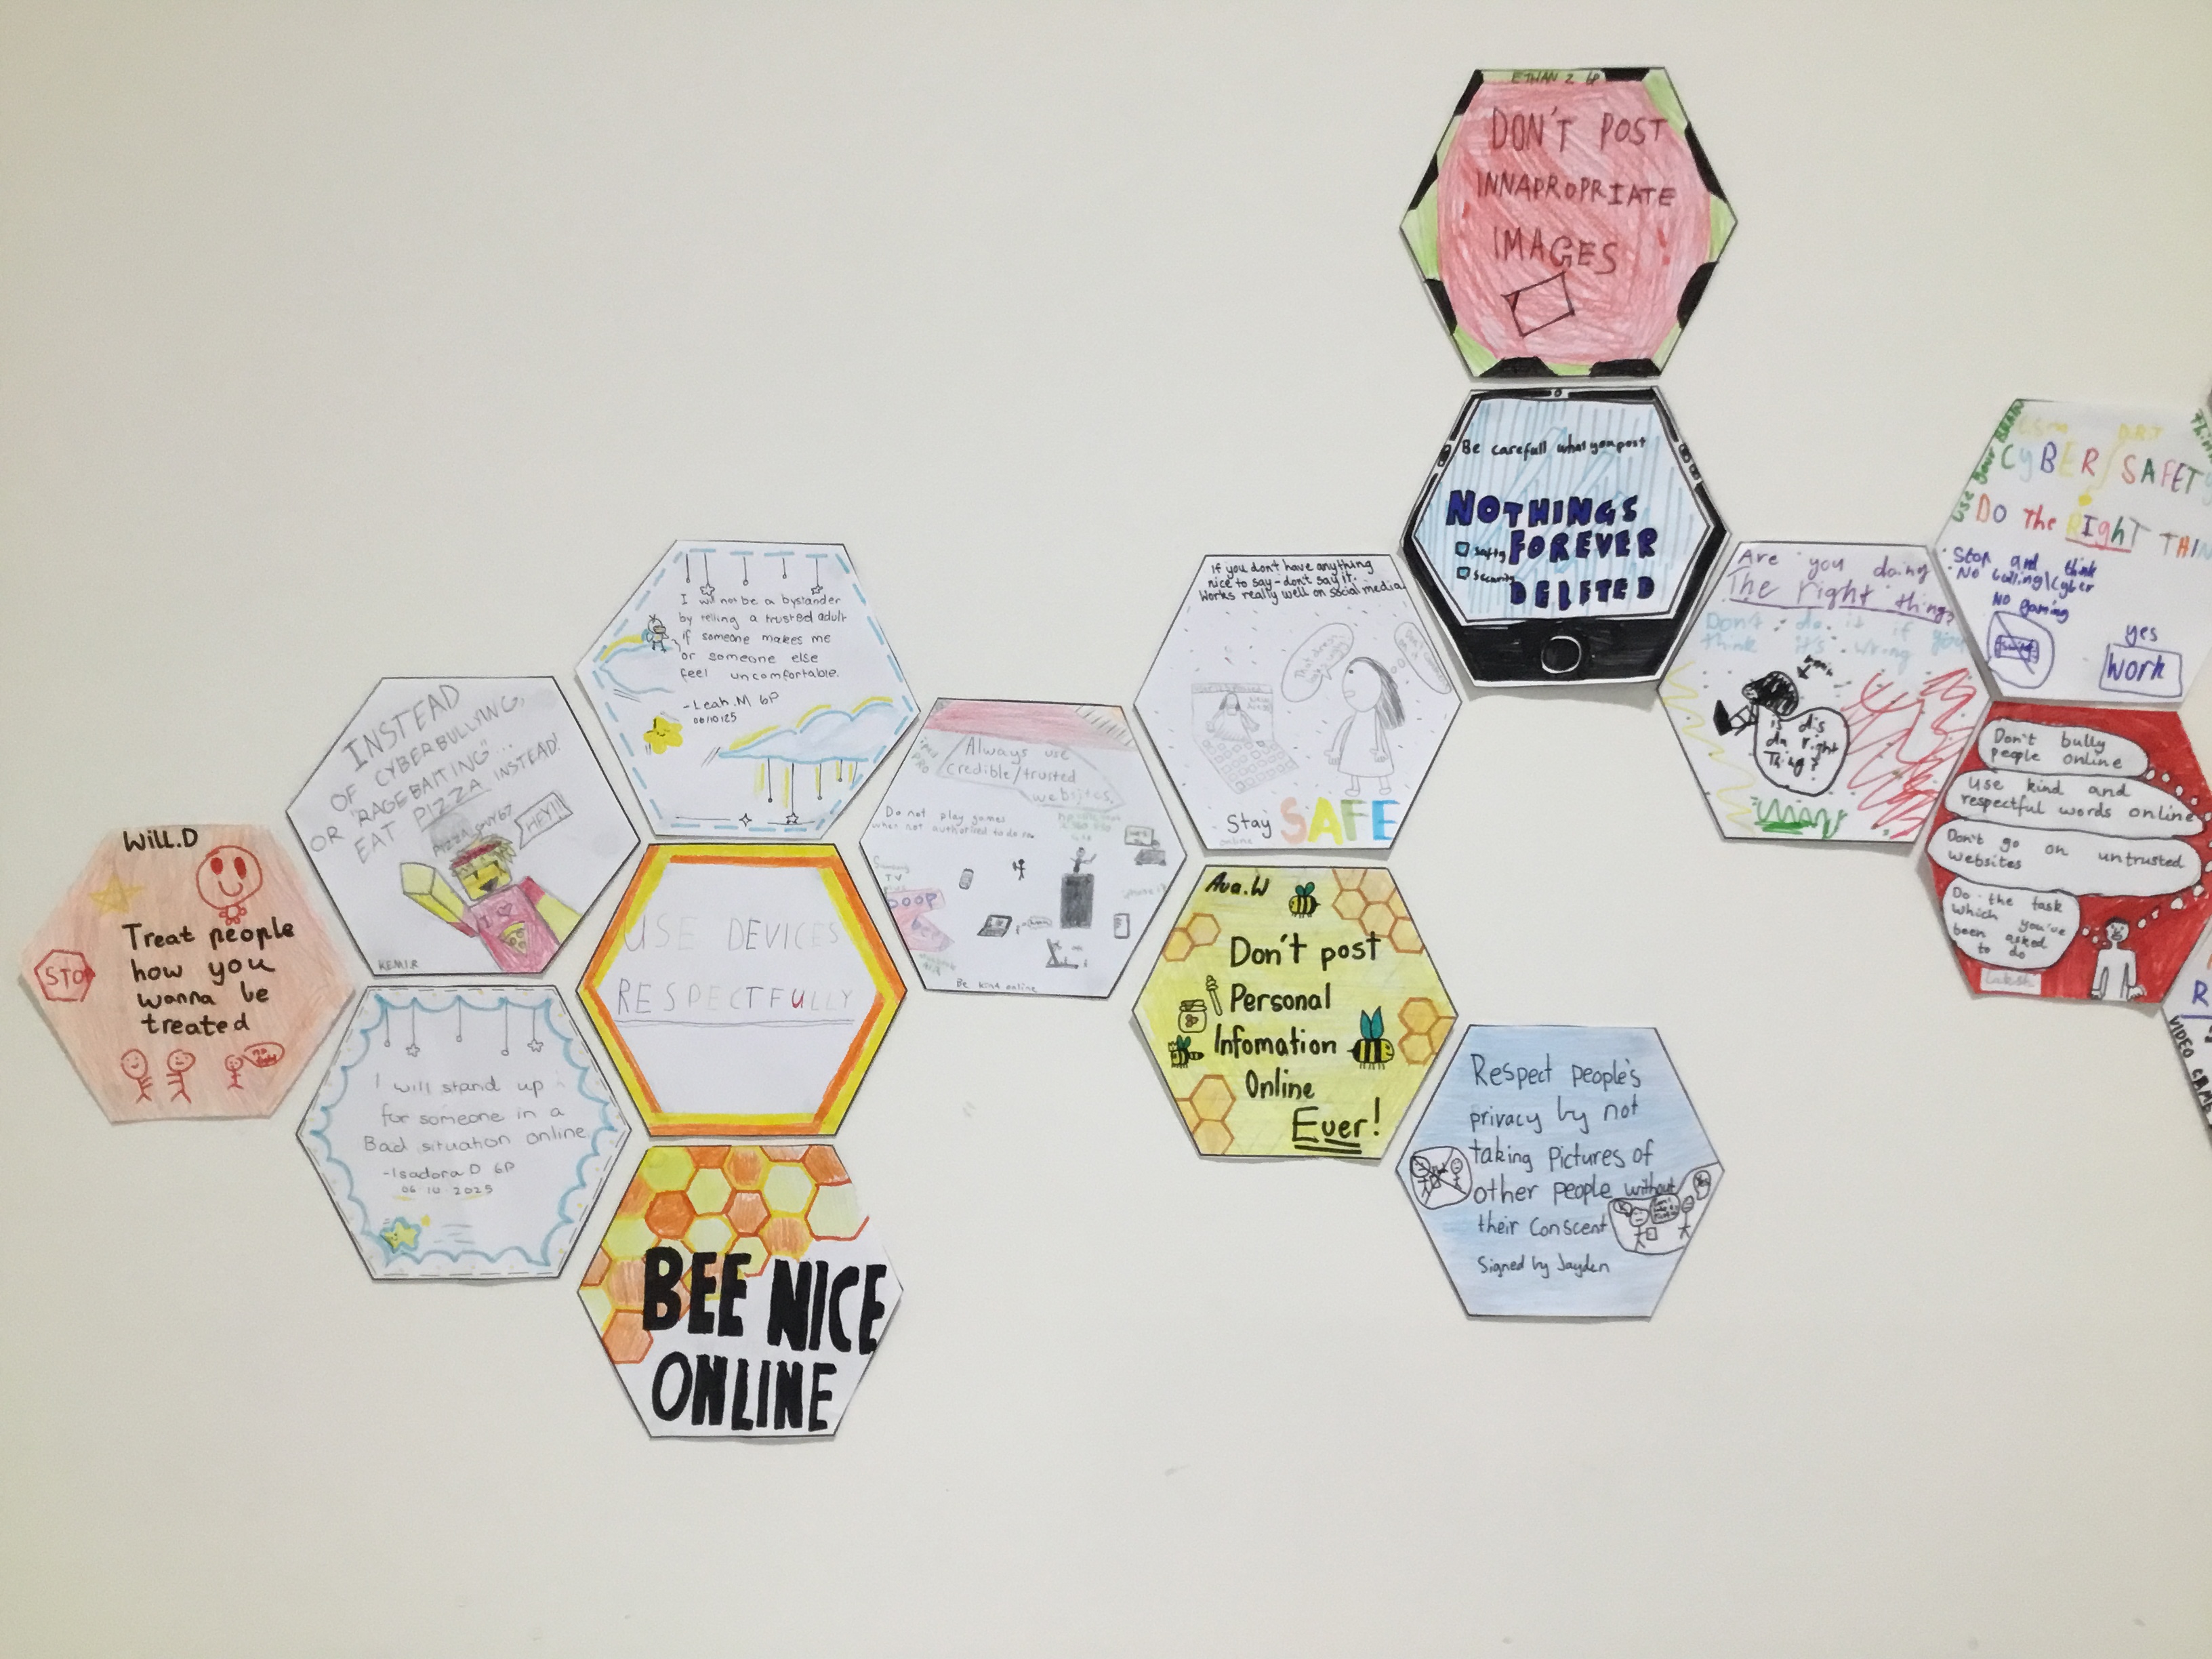 WILL.D
STOP
Treat people
how you
wanna be
treated
INSTEAD
OF CYBERBULLYING,
OR "RAGEBAITING"...
EAT PIZZA INSTEAD!
PIZZA GUY67
HEY!!!
KEMIR
I will stand up
for someone in a
Bad situation online
-Isadora D 6P
06 10 2025
I will not be a bystander
by telling a trusted adult
if someone makes me
or someone else
feel uncomfortable.
-Leah.M 6P
06/10/25
USE DEVICES
RESPECTFULLY
BEE NICE
ONLINE
Always use
credible/trusted
websites.
iPad
PRO
Do not play games
when not authorised to do so.
Samsung
TV
poop
Be kind online
If you don't have anything
nice to say - don't say it.
Works really well on social media
Stay SAFE
online
Ava.W
Don't post
Personal
Infomation
Online
Ever!
ETHAN Z 6P
DON'T POST
INNAPROPRIATE
IMAGES
Be carefull what you post
NOTHINGS
FOREVER
DELETED
Safty
Security
Respect people's
privacy by not
taking Pictures of
other people without
their Conscent
Signed by Jayden
Are you doing
The right thing?
Don't do it if you
think it's wrong
is dis
da right
Thing?
Use your BRAIN
CyBER SAFETy
DO The RIghT THIN
Stop and think
No bulling/Cyber
NO gaming
yes
Work
Don't bully
people online
Use kind and
respectful words online
Don't go on untrusted
websites
Do the task
which you've
been asked
to do
Laksh
R
VIDEO GAME